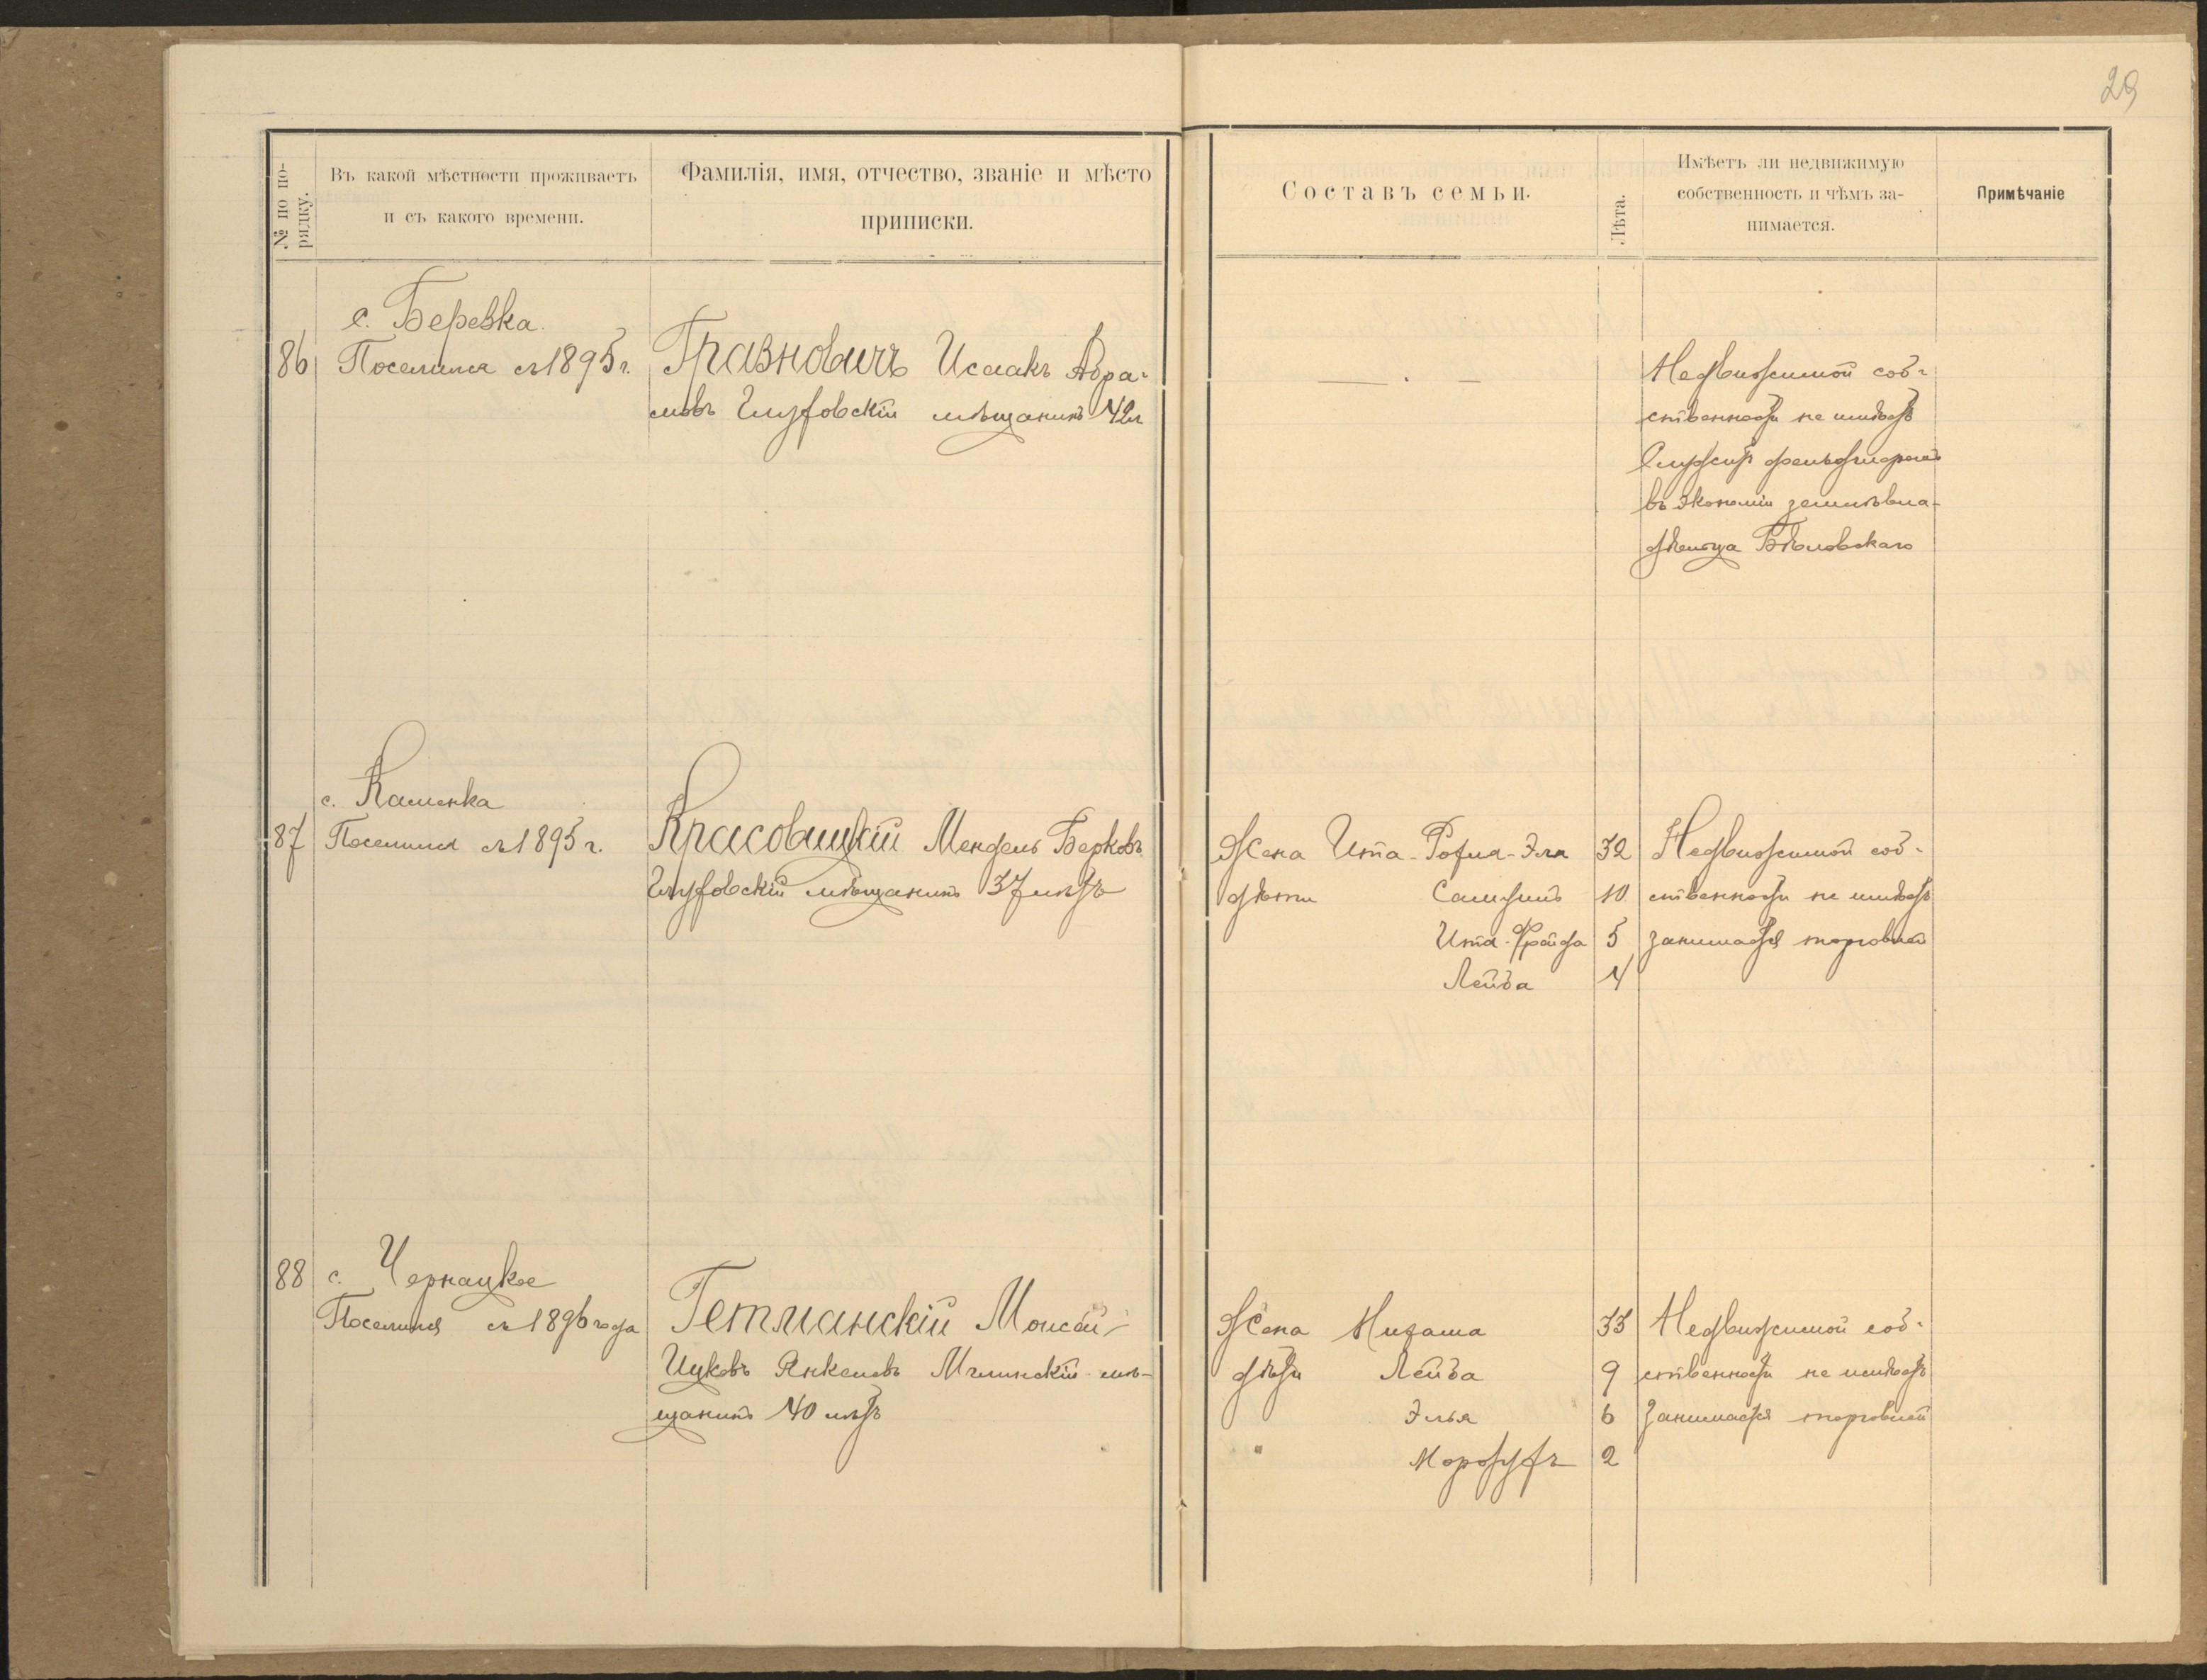 29
№ по по-
рядку.
Въ какой мѣстности проживаетъ
и съ какого времени.
Фамилія, имя, отчество, званіе и мѣсто
приписки.
Составъ семьи.
Лѣта.
Имѣетъ ли недвижимую
собственность и чѣмъ за-
нимается.
Примѣчаніе
с. Беревка
86 Поселился съ 1895 г.
Гразновичъ Исаакъ Абра-
мовъ Глуховскій мѣщанинъ 42 л
Недвижимой соб-
ственности не имѣетъ
Служитъ фельдшеромъ
въ экономіи землевла-
дѣльца Бѣловскаго
с. Каменка
87 Поселился съ 1895 г.
Красовицкій Мендель Берковъ
Глуховскій мѣщанинъ 37 лѣтъ
Жена Ита-Рохля-Эля 32
дѣти Самуилъ 10
Ита-Фрейда 5
Лейба 4
Недвижимой соб-
ственности не имѣетъ
занимается торговлей
88 с. Чернацкое
Поселился съ 1896 года
Гетманскій Моисей-
Ицковъ Янкелевъ Мглинскій мѣ-
щанинъ 40 лѣтъ
Жена Нихама 33
дѣти Лейба 9
Элья 6
" Мордухъ 2
Недвижимой соб-
ственности не имѣетъ
Занимается торговлей